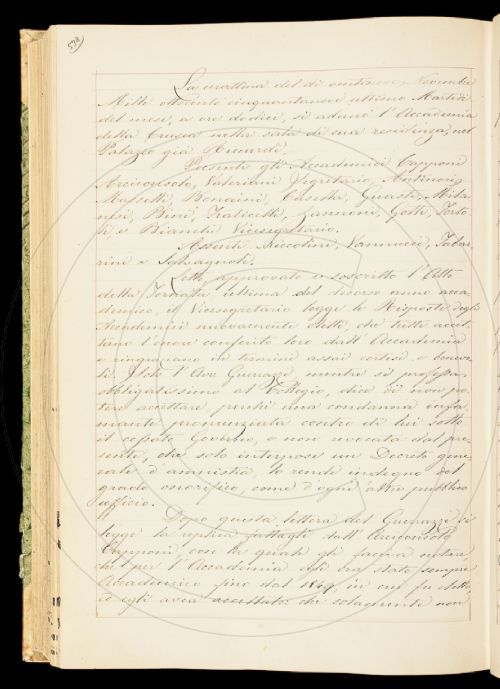 538
La mattina del dì ventinove Novembre
Mille ottocento cinquantanove ultimo Martedì
del mese, a ore dodici, si adunò l'Accademia
della Crusca nella sala di sua residenza, nel
Palazzo già Riccardi,
Presenti gli Accademici Capponi
Arciconsolo, Valeriani Segretario, Antinori,
Masselli, Bonaini, Casella, Guasti, Mila-
nesi, Bini, Fraticelli, Zannoni, Gotti, Torto-
li, e Bianchi Vicesegretario.
Assenti Niccolini, Vannucci, Tabar-
rini e Salvagnoli.
Letto, approvato e soscritto l'Atto
della Tornata ultima del decorso anno acca-
demico, il Vicesegretario legge le Risposte degli
Accademici nuovamente eletti, che tutti accet-
tano l'onore conferito loro dall'Accademia
e ringraziano in termini assai cortesi e benevo-
li. Solo l'Avv. Guerrazzi, mentre si professa
obbligatissimo al Collegio, dice di non po-
tere accettare perchè una condanna infa-
mante pronunziata contro di lui sotto
il cessato Governo, e non revocata dal pre-
sente, che solo interpose un Decreto gene-
rale d'amnistia, lo rende indegno del
grado onorifico, come d'ogni altro pubblico
ufficio.
Dopo questa lettera del Guerrazzi si
legge la replica fattagli dall'Arciconsolo
Capponi, con la quale gli faceva sapere
che per l'Accademia egli era stato sempre
Accademico fino dal 1849 in cui fu eletto,
ed egli avea accettato: che solamente non